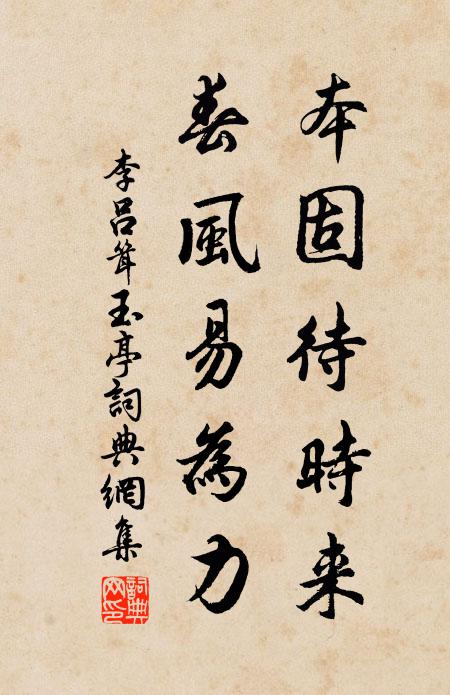 本固待時来
春風易為力
李吕茸玉亭詞典網集
詞典网印